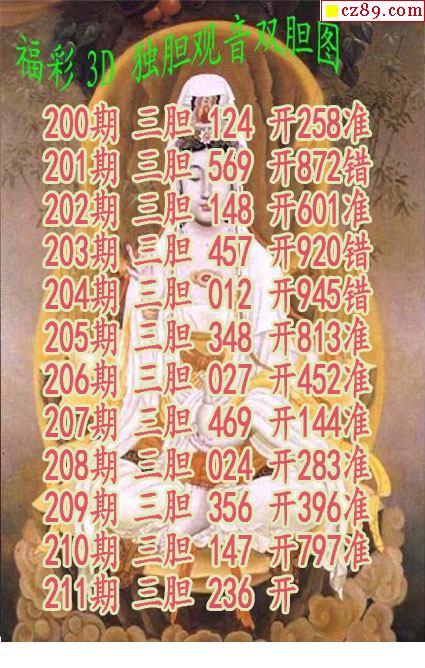 cz89.com
福彩 3D 独胆观音双胆图
200期 三胆 124 开258准
201期 三胆 569 开872错
202期 三胆 148 开601准
203期 三胆 457 开920错
204期 三胆 012 开945错
205期 三胆 348 开813准
206期 三胆 027 开452准
207期 三胆 469 开144准
208期 三胆 024 开283准
209期 三胆 356 开396准
210期 三胆 147 开797准
211期 三胆 236 开